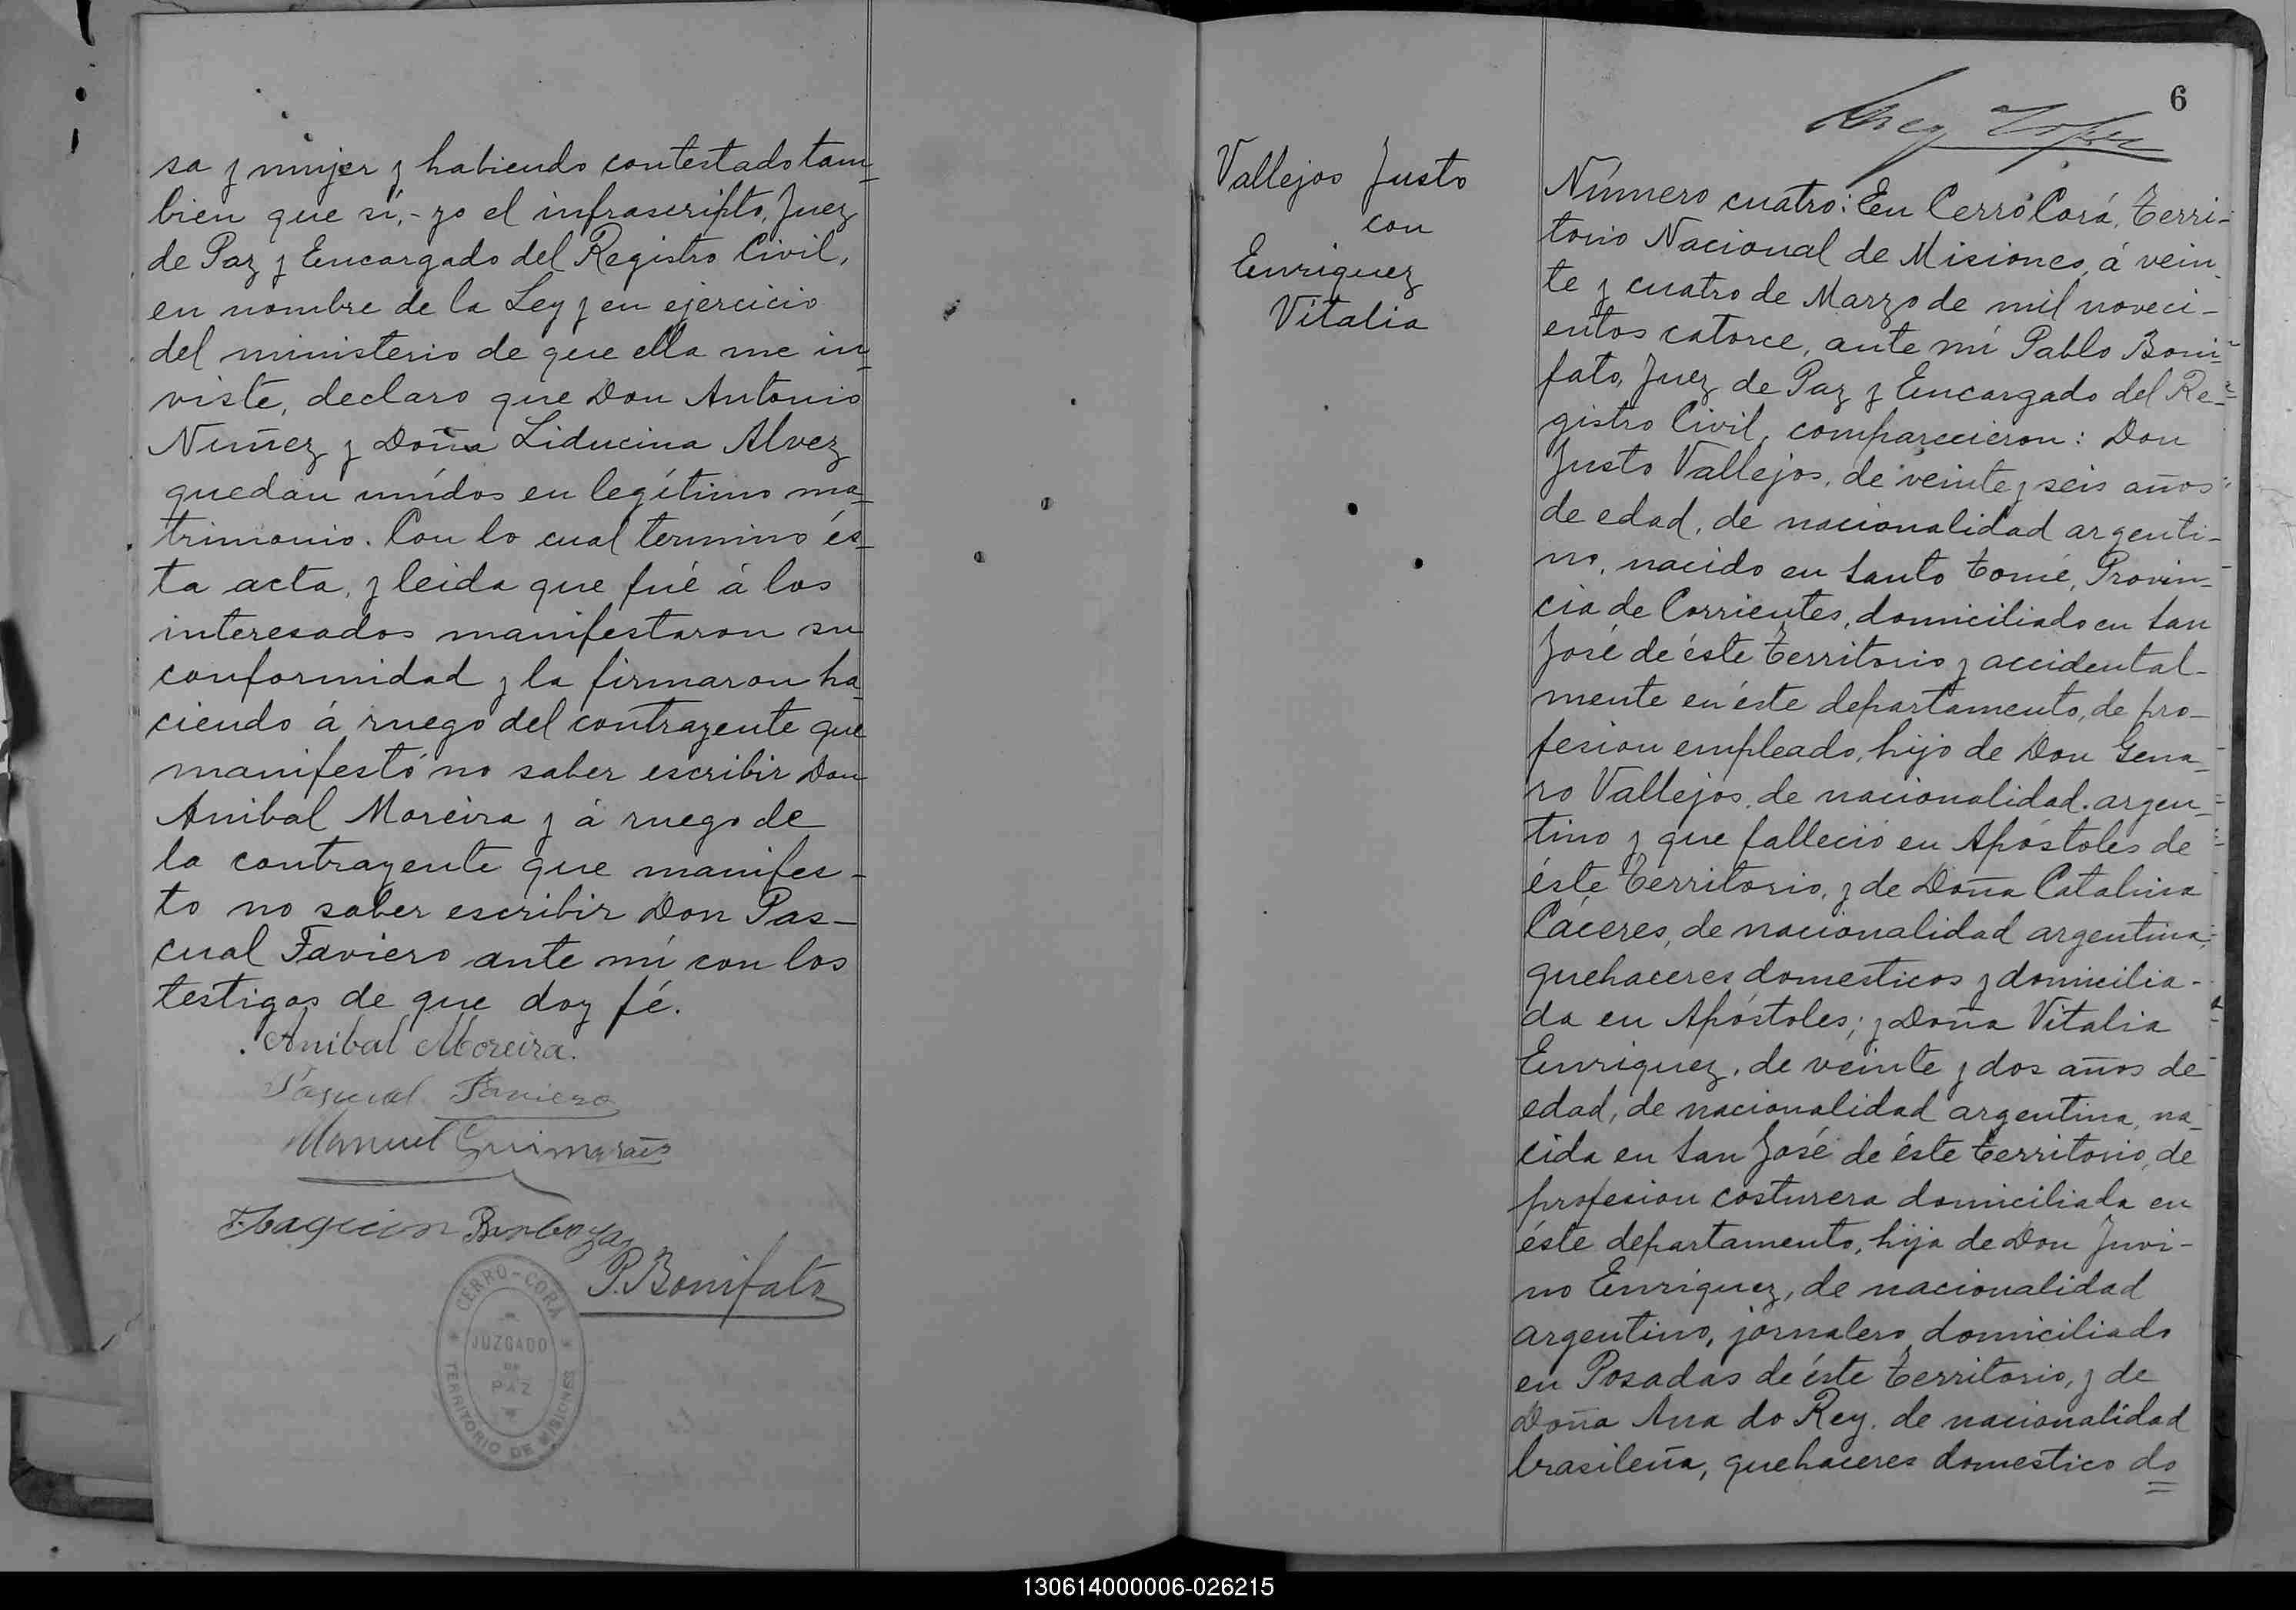 sa y mujer y habiendo contestado tam-
bien que sí, - yo el infrascripto, Juez
de Paz y Encargado del Registro Civil,
en nombre de la Ley y en ejercicio
del ministerio de que ella me in-
viste, declaro que Don Antonio
Nuñez y Doña Liducina Alvez
quedan unídos en legítimo ma-
trimonio. Con lo cual termino és-
ta acta, y leida que fué á los
interesados manifestaron su
conformidad y la firmaron ha-
ciendo á ruego del contrayente que
manifestó no saber escribir Don
Anibal Moreira y á ruego de
la contrayente que manifes-
to no saber escribir Don Pas-
cual Faviero ante mí con los
testigos de que doy fé.
Anibal Moreira.
Pascual Faviero
Manuel Guimaraes
Barboza
P. Bonifato
CERRO-CORÁ
JUZGADO
DE
PAZ
TERRITORIO DE MISIONES
6
Vallejos Justo
con
Enriquez
Vitalia
Número cuatro: En Cerro Corá, Terri-
torio Nacional de Misiones, á vein-
te y cuatro de Marzo de mil noveci-
entos catorce, ante mí Pablo Boni-
fato, Juez de Paz y Encargado del Re-
gistro Civil, comparecieron: Don
Justo Vallejos, de veinte y seis años
de edad, de nacionalidad argenti-
no, nacido en Santo Tomé, Provin-
cia de Corrientes, domiciliado en San
José de éste Territorio y accidental-
mente en éste departamento, de pro-
fesion empleado, hijo de Don Gena-
ro Vallejos, de nacionalidad argen-
tino y que falleció en Apóstoles de
éste Territorio, y de Doña Catalina
Cáceres, de nacionalidad argentina,
quehaceres domesticos y domicilia-
da en Apóstoles; y Doña Vitalia
Enriquez, de veinte y dos años de
edad, de nacionalidad argentina, na-
cida en San José de éste Territorio, de
profesion costurera domiciliada en
éste departamento, hija de Don Juvi-
no Enriquez, de nacionalidad
argentino, jornalero, domiciliado
en Posadas de éste Territorio, y de
Doña Ana do Rey, de nacionalidad
brasileña, quehaceres domestico do
130614000006-026215